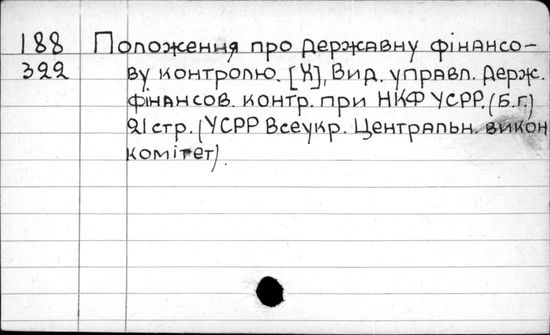 188 Положення про державну фінансо-
322 ву контролю. [Х], Вид. управл. Держ.
фінансов. контр. при НКФ УСРР. (Б.г.)
21 стр. (УСРР Всеукр. Центральн. викон
комітет).